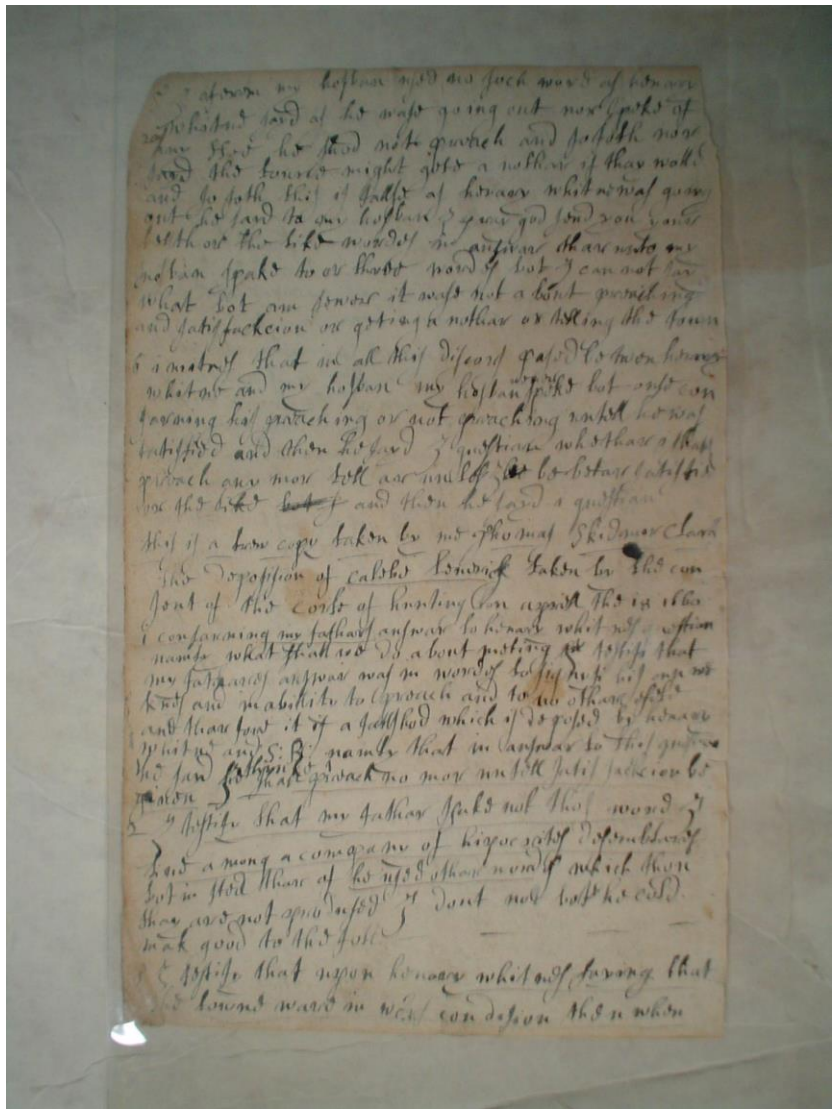 I aterem my hosban used no soch word as henary
whitne sard as he wase going out nor spoke of
any else he shod note preach and so foth nor
sard the towne might gete a nothar if thay wolld
and so foth this is fallse as henary whitne was going
out he sard to my hosban I pray god send you your
helth or the like wordes in answar thar unto my
hosban spake to or three wordes bot I can not say
what bot am sewer it wase not a bout preaching
and satisfackcion or geting a nothar or telling the town
6 i witnes that in all this discors pased betwen henary
whitne and my hosban my hosban spoke bot onse con
sarning his preaching or not preaching untell he was
satisfied and then he sard I question whethar i shall
preach any mor tell or unless I be betar satisfie
or the like bot I and then he sard i question
this is a trew copy taken by me Thomas Skidmor Clark
The deposition of calebe lenerich taken by the con
sent of the corte of hunting ton aprell the 1660
1 consarning my fathars answar to henary whitnes question
namly what shall we do about meting I testify that
my fathares answar was in wordes to his own
and inability to preach and to no othar
and thar fore it is a fallshod which is deposed by henary
whitne and S: B: namly that in answar to this question
he sard he thinks I shall preach no mor untell satisfackcion be
given
2 I testify that my fathar spake not thes word I
live a mong a company of hipocrites desemblares
bot in sted thar of he used othar wordes which then
thay are not prodused I dont nor bote he cold
mak good to the full
I testify that upon henary whitnes saying that
the towne ware in wors condision then when